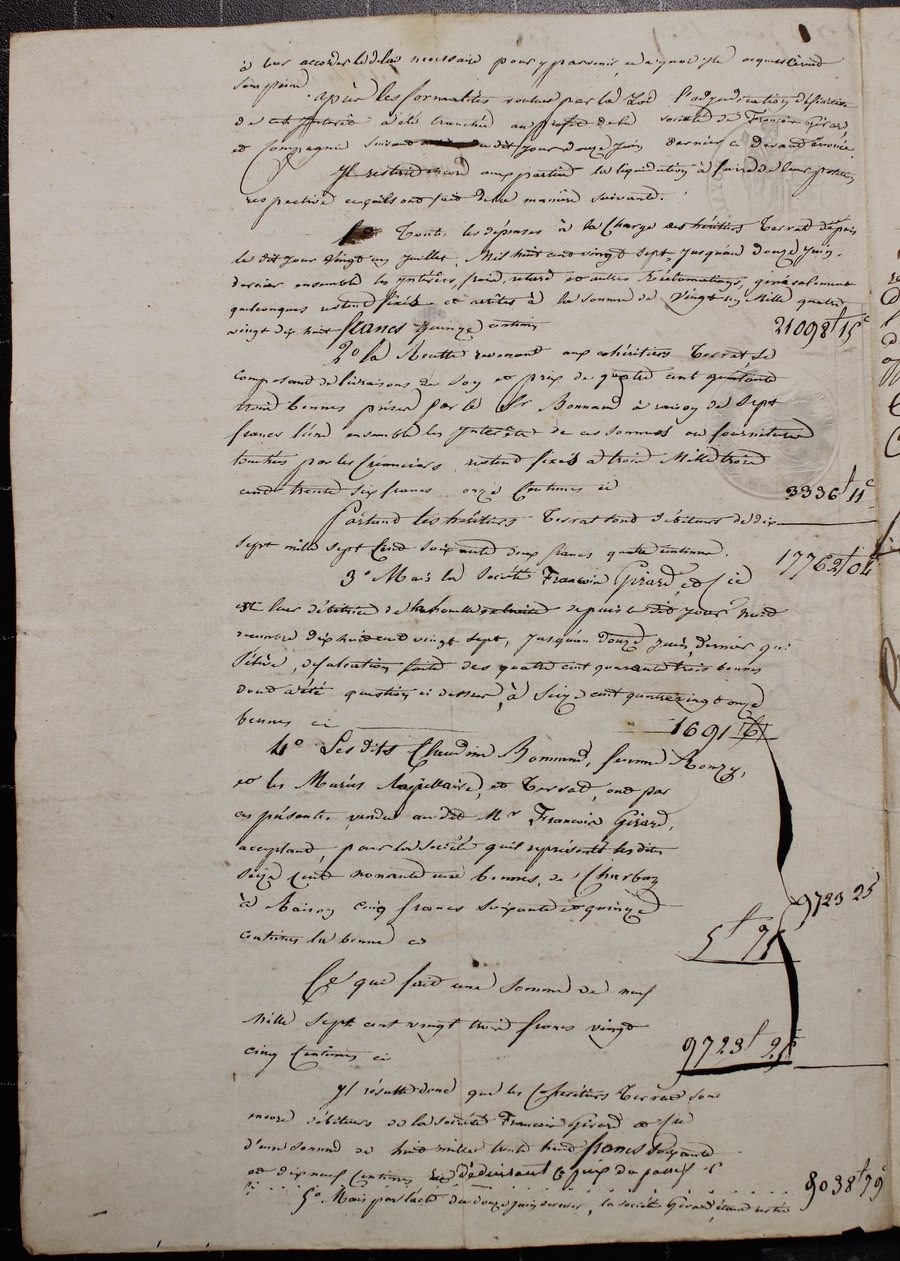 à leur accorder le délai nécessaire pour y parvenir, ce à quoi
Après les formalités voulues par la Loi l'adjudication définitive
de a été tranchée au profit de la société de François Girard
et Compagnie suivant dudit jour douze juin dernier ci devant énoncé.
Il restait encore aux parties la liquidation à faire de leur position
respective ce qu'ils ont fait de la manière suivante.
1o Toutes les dépenses à la charge des héritiers Terrat depuis
le dit jour vingt un juillet Mil huit cent vingt sept, jusqu'au douze juin
dernier ensemble les yntérêts, frais, retard et autres Réclamations, généralement
quelconques restent fixés et arrêtés à la somme de vingt un Mille quatre
vingt dix huit francs quinze centimes 21098f 15c
2o la Recette revenant aux cohéritiers Terrat se
composant de livraisons de Son et prix de quatre cent quarante
trois bennes prises par le Sr Bonnand à raison de sept
francs l'une ensemble les yntérêts de ces sommes ou fournitures
touchés par les créanciers restent fixés à trois Mille trois
cent trente six francs onze Centimes ci 3336f 11c
Partant les héritiers Terrat sont débiteurs de dix
sept mille sept Cent soixante deux francs quatre centimes. 17762f 04c
3o Mais la Société François Girard, et Cie
est leur débitrice de la houille extraite depuis le dit jour neuf
décembre dix huit cent vingt sept, jusqu'au douze juin dernier qui
s'élève, défalcation faite des quatre cent quarante trois bennes
dont a été question ci dessus, à Seize cent quatre vingt onze
bennes ci 1691 b
4o Les dits Claudine Bonnand, femme Ronzy,
et les Mariés Lapillaire, et Terrat, ont par
ces présentes vendu au dit Mr François Girard,
acceptant pour la Société qu'il représente les dites
Seize Cent nonante une bennes, de Charbon
à Raison cinq francs soixante et quinze
centimes la benne ci 5f 75
9723 25
Ce qui fait une somme de neuf
Mille sept cent vingt trois francs vingt
cinq Centimes ci 9723f 25c
Il résulte donc que les Cohéritiers Terrat sont
encore débiteurs de la société François Girard et Cie
d'une somme de huit milles trente huit francs soixante
et dix neuf Centimes en déduisant le prix 8038f 79c
5o. Mais par l'acte du douze juin dernier, la société Girard étant restée